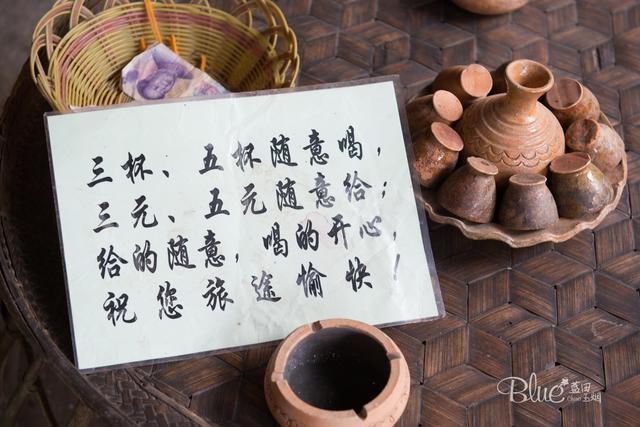 三杯、五杯随意喝，
三元、五元随意给；
给的随意，喝的开心，
祝您旅途愉快！
Blue
蓝田
玉烟